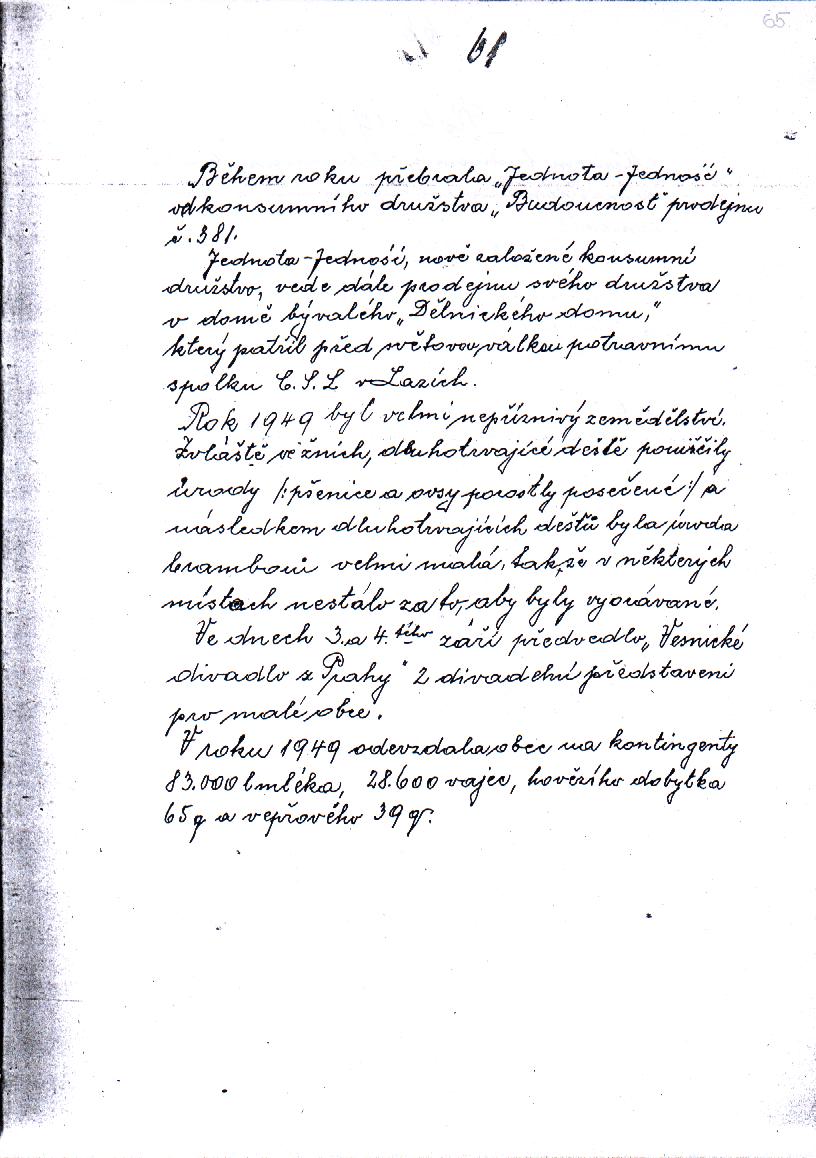 65
61
Během roku přebrala „Jednota-Jedność"
od konsumního družstva „Budoucnost" prodejnu
č. 381.
Jednota-Jedność, nově založené konsumní
družstvo, vede dále prodejnu svého družstva
v domě bývalého „Dělnického domu,"
který patřil před světovou válkou potravnímu
spolku C.S.L v Lazích.
Rok 1949 byl velmi nepříznivý zemědělství.
Zvláště ve žních, dluhotrvající deště poničily
úrody /:pšenice a ovsy porostly posečené:/ a
následkem dluhotrvajících dešťů byla úroda
brambor velmi malá, takže v některých
místach nestálo za to, aby byly vyorávané.
Ve dnech 3. a 4. tého září předvedlo „Vesnické
divadlo z Prahy" 2 divadelní představení
pro malé obce.
V roku 1949 odevzdala obec na kontingenty
83.000 l mléka, 28.600 vajec, hovězího dobytka
65 q a vepřového 39 q.